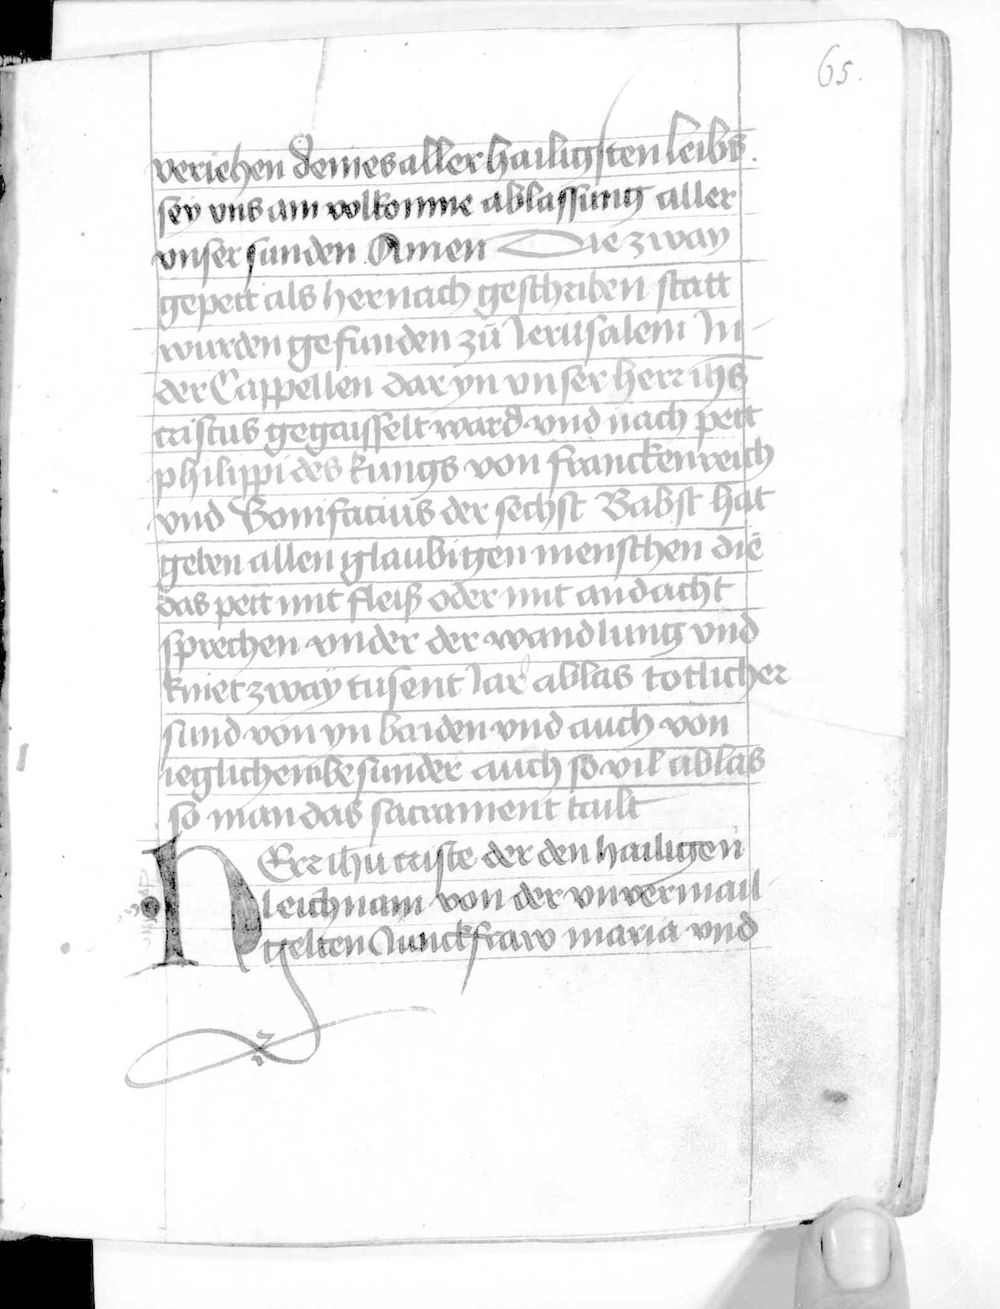 65.
veriehen deines aller hailigsten leibs.
sey vns ain volkomne ablassung aller
vnser sunden Amen Die zway
gepett als hernach geschriben statt
wurden gefunden zů Jerusalem In
der Cappellen dar yn vnser herr ihs
cristus gegaisselt ward vnd nach pett
philippi des kungs von franckenreich
vnd Bonifacius der sechst Babst hat
geben allen glaubigen menschen die
das pett mit fleiß oder mit andacht
sprechen vnder der wandlung vnd
kniet zway tusent Jar ablas totlicher
sund von yn baiden vnd auch von
ieglichem besunder auch so vil ablas
so man das sacrament tailt
HErr ihu criste der den hailigen
leichnam von der vnvermail
gelten Junckfraw maria vnd